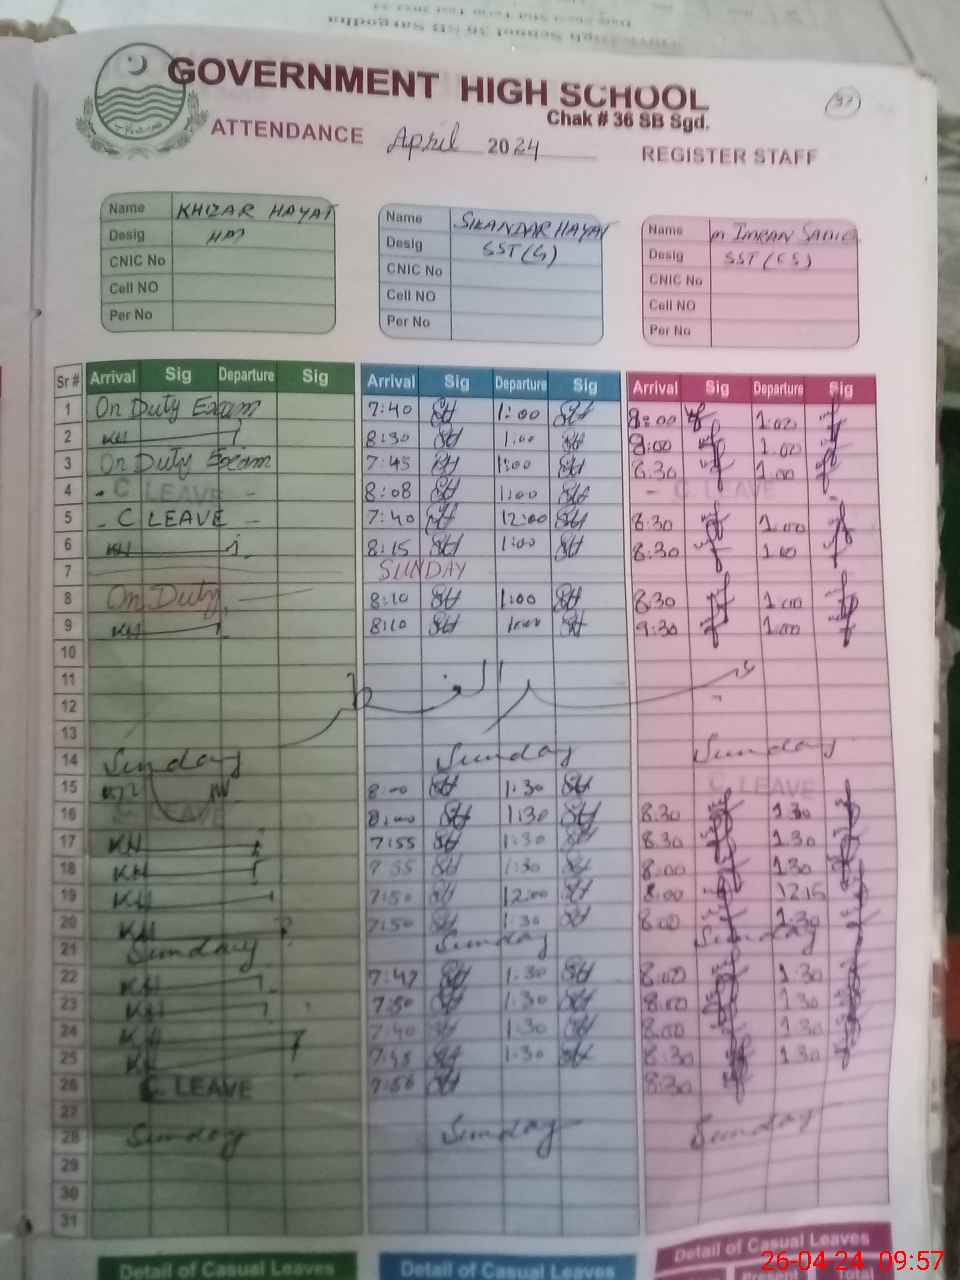 GOVERNMENT HIGH SCHOOL
Chak # 36 SB Sgd.
ATTENDANCE April 2024 REGISTER STAFF
Name KHIZAR HAYAT
Desig HM
CNIC No
Cell NO
Per No
Name SIKANDAR HAYAT
Desig SST(S)
CNIC No
Cell NO
Per No
Name M IMRAN
Desig SST (CS)
CNIC No
Cell NO
Per No
Sr # Arrival Sig Departure Sig Arrival Sig Departure Sig Arrival Sig Departure Sig
1 On Duty Exam 7:40 1:00 8:00 1.00
2 KH 8:30 1:00 8:00 1.00
3 On Duty Exam 7:45 1:00 8.30 1.00
4 - C LEAVE - 8:08 1:00 - C LEAVE
5 - C LEAVE - 7:40 12:00 8.30 1.00
6 KH 8:15 1:00 8.30 1.00
7 SUNDAY
8 On Duty 8:10 1:00 8.30 1.00
9 KH 8:10 1:00 9.30 1.00
10
11 عید الفطر
12
13
14 Sunday Sunday Sunday
15 8:00 1:30 C LEAVE
16 C LEAVE 8:00 1:30 8.30 1.30
17 KH 7:55 1:30 8.30 1.30
18 KH 7:55 1:30 8.00 1.30
19 KH 7:50 12:00 8.00 12.15
20 KH 7:50 1:30 8.00 1.30
21 Sunday Sunday Sunday
22 KH 7:47 1:30 8.00 1.30
23 KH 7:50 1:30 8.00 1.30
24 KH 7:40 1:30 8.00 1.30
25 KH 7:45 1:30 8.30 1.30
26 C LEAVE 7:50 8.30
27
28 Sunday Sunday Sunday
29
30
31
Detail of Casual Leaves Detail of Casual Leaves Detail of Casual Leaves
26-04-24 09:57